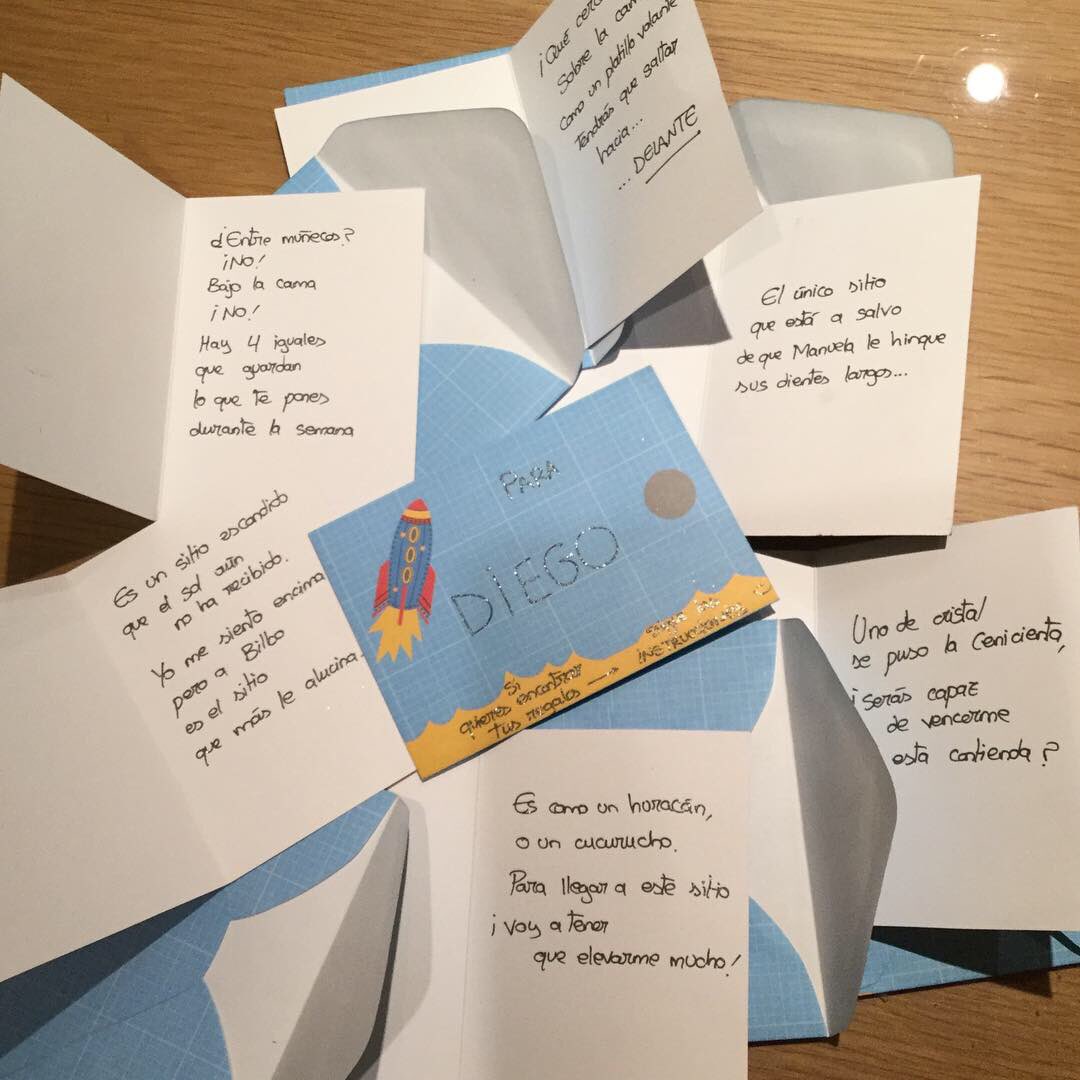 ¡Qué
Sobre la
como un platillo volante
tendrás que saltar
hacia...
... DELANTE
¿Entre muñecos?
¡NO!
Bajo la cama
¡NO!
Hay 4 iguales
que guardan
lo que te pones
durante la semana
El único sitio
que está a salvo
de que Manuela le hinque
sus dientes largos...
PARA
DIEGO
Si
quieres encontrar
tus regalos →
SIGUE LAS
INSTRUCCIONES
Es un sitio escondido
que el sol aún
no ha recibido.
Yo me siento encima
pero a Bilbo
es el sitio
que más le alucina.
Uno de cristal
se puso la Cenicienta,
¡serás capaz
de vencerme
esta contienda?
Es como un huracán,
o un cucurucho.
Para llegar a este sitio
¡voy a tener
que elevarme mucho!